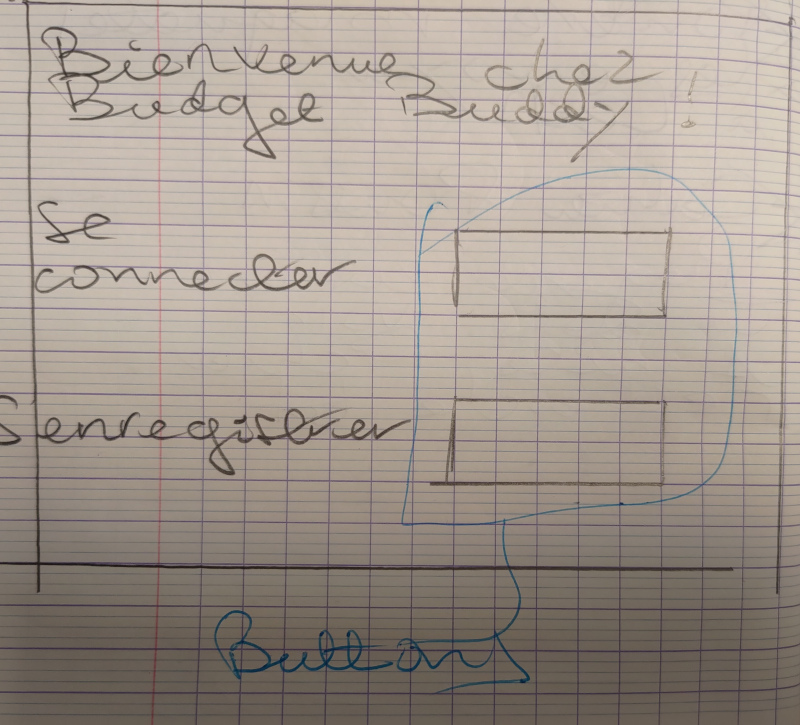 Bienvenue chez
Budget Buddy !
Se
connecter
S'enregistrer
Buttons